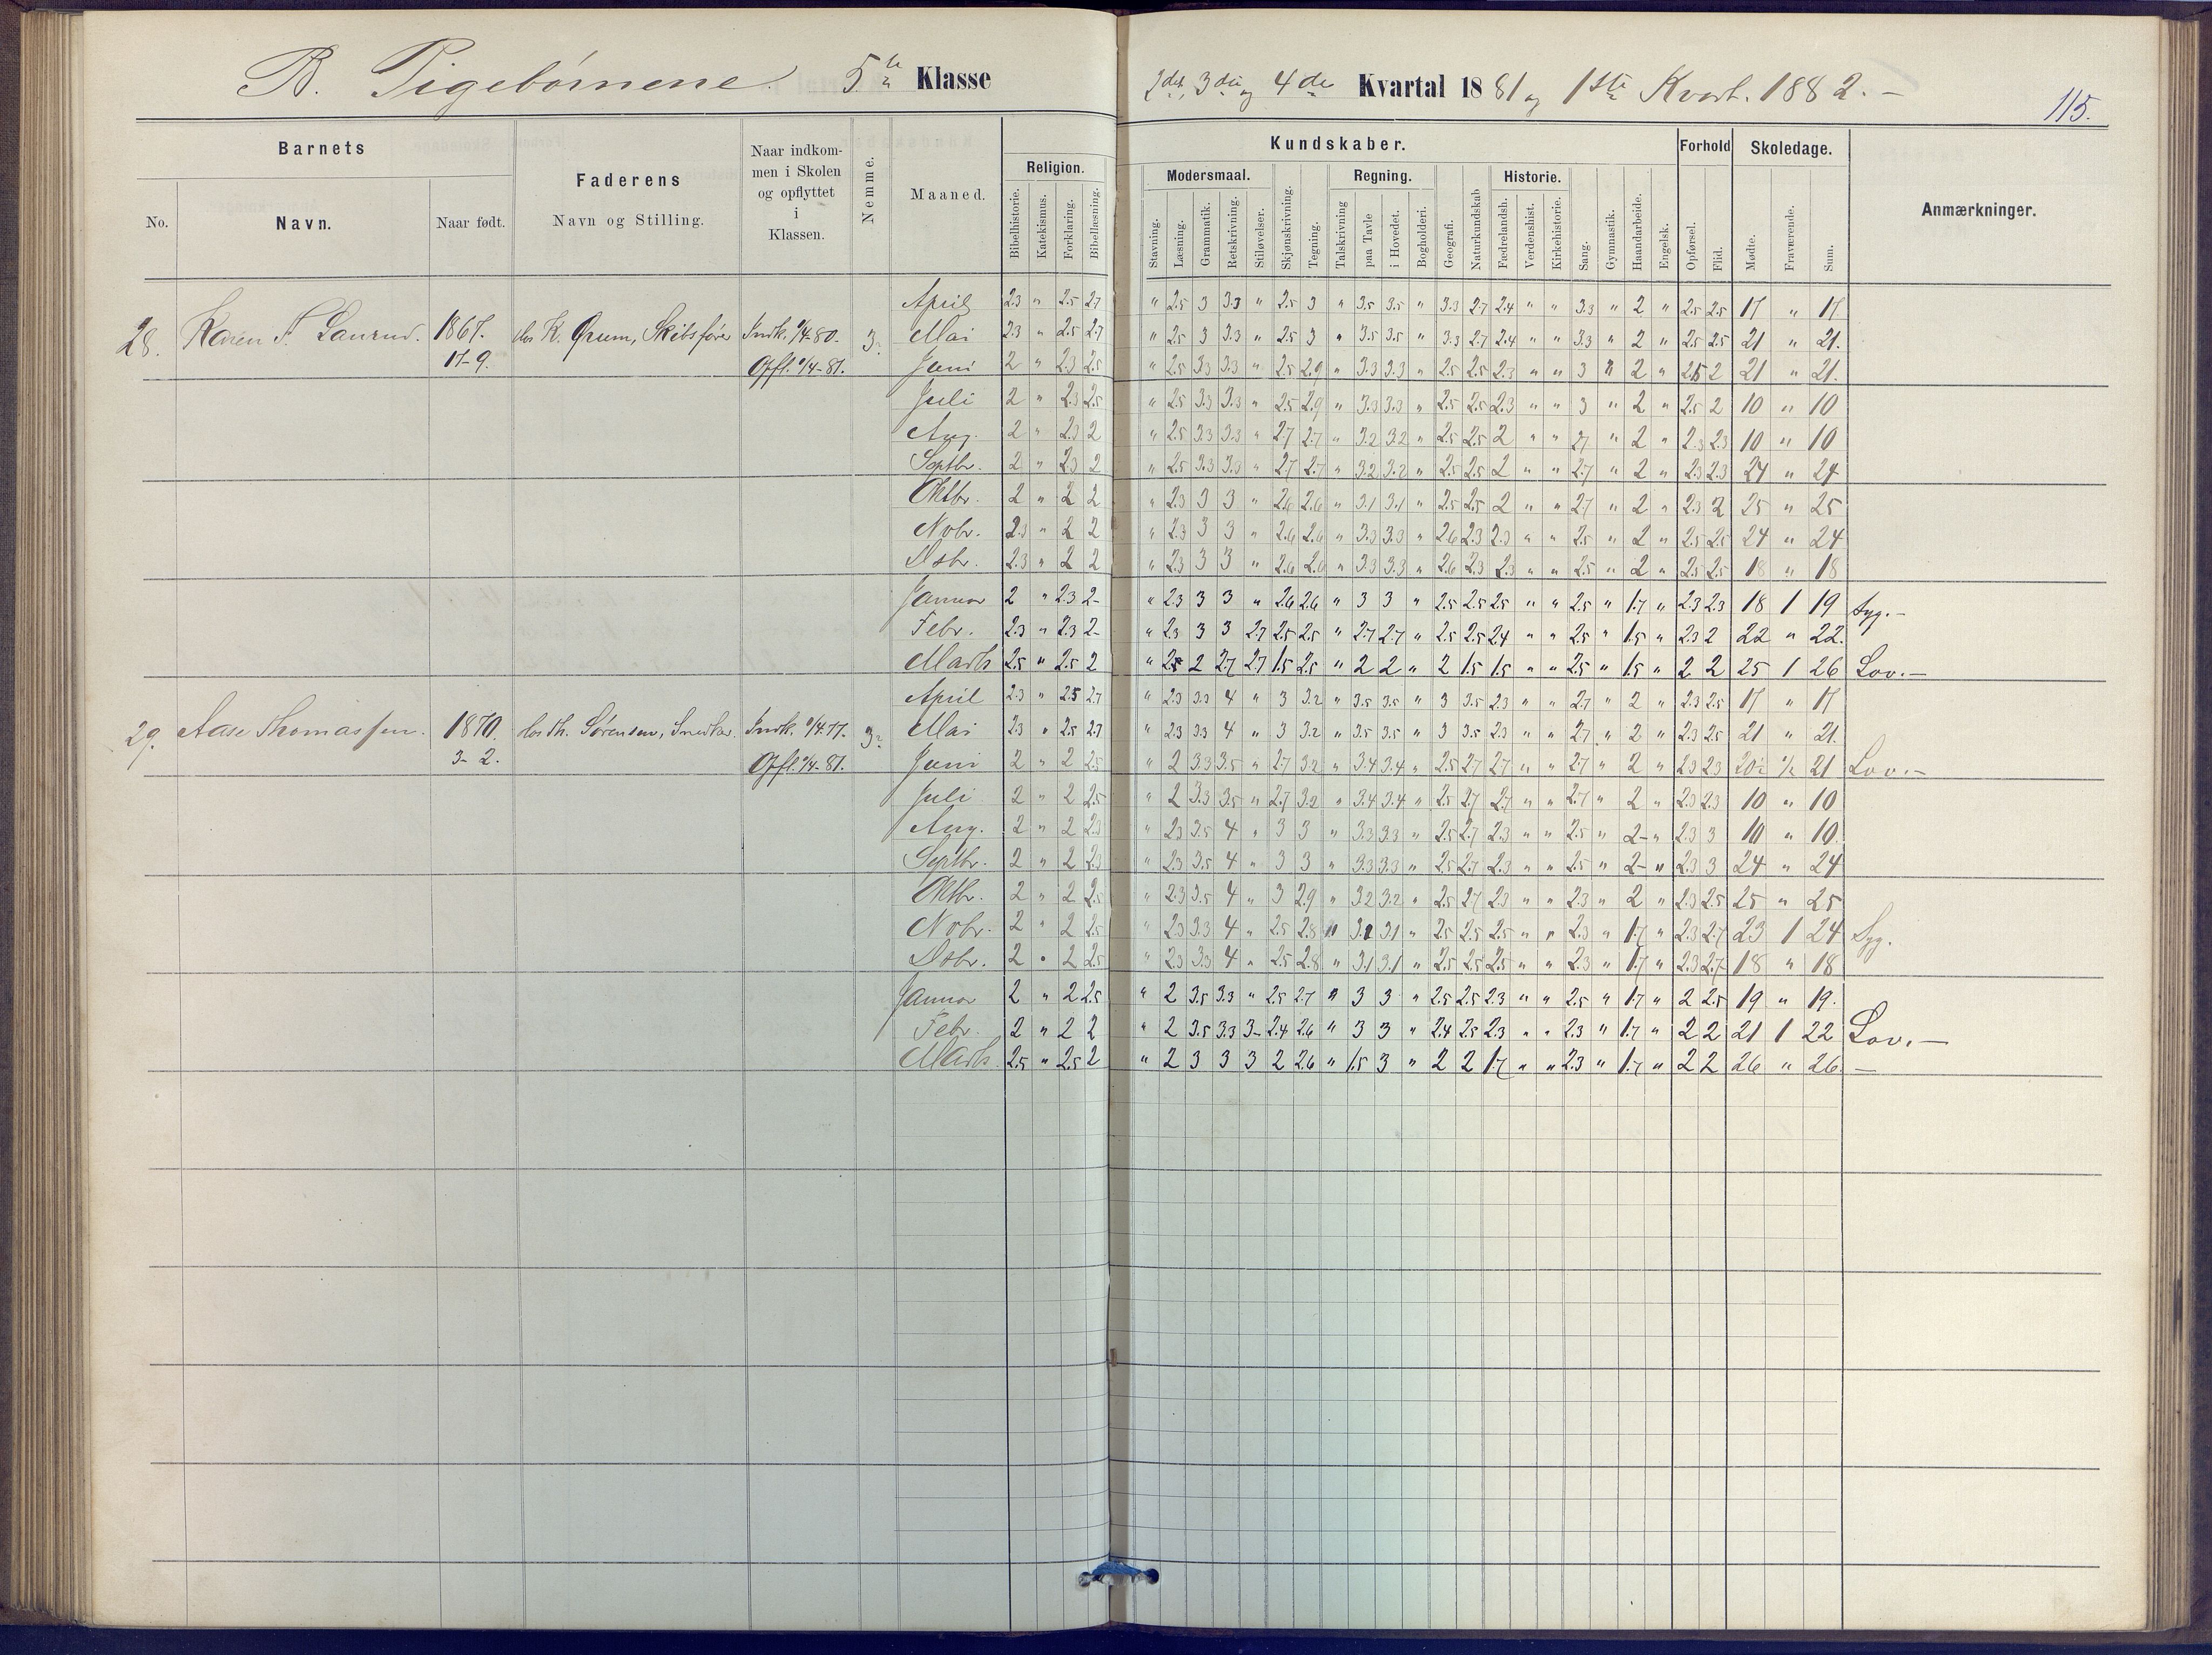 B. Pigebørnene. 5te Klasse
2det, 3die og 4de Kvartal 1881 og 1ste Kvart. 1882. –
115.
Barnets
No.
Navn.
Naar født.
Faderens
Navn og Stilling.
Naar indkom-
men i Skolen
og opflyttet
i
Klassen.
Nemme.
Maaned.
Religion.
Bibelhistorie.
Katekismus.
Forklaring.
Bibellæsning.
Kundskaber.
Modersmaal.
Stavning.
Læsning.
Grammatik.
Retskrivning.
Stiløvelser.
Skjønskrivning.
Tegning.
Regning.
Talskrivning
paa Tavle
i Hovedet.
Bogholderi.
Geografi.
Naturkundskab
Historie.
Fædrelandsh.
Verdenshist.
Kirkehistorie.
Sang.
Gymnastik.
Haandarbeide.
Engelsk.
Forhold
Opførsel.
Flid.
Skoledage.
Mødte.
Fraværende.
Sum.
Anmærkninger.
28.
1867.
17-9.
Indk. 1/4-80.
Opfl. 1/4-81.
3.
April 2.3 " 2.5 2.7 " 2.5 3 3.3 " 2.5 3 " 3.5 3.5 " 3.3 2.7 2.4 " " 3.3 " 2 " 2.5 2.5 17 " 17.
Mai 2.3 " 2.5 2.7 " 2.5 3 3.3 " 2.5 3 " 3.5 3.5 " 3.3 2.7 2.4 " " 3.3 " 2 " 2.5 2.5 21 " 21.
Juni 2 " 2.3 2.5 " 2.5 3.3 3.3 " 2.5 2.9 " 3.3 3.3 " 2.5 2.5 2.3 " " 3 " 2 " 2.5 2 21 " 21.
Juli 2 " 2.3 2.5 " 2.5 3.3 3.3 " 2.5 2.9 " 3.3 3.3 " 2.5 2.5 2.3 " " 3 " 2 " 2.5 2 10 " 10
Aug. 2 " 2.3 2 " 2.5 3.3 3.3 " 2.7 2.7 " 3.2 3.2 " 2.5 2.5 2 " " 2.7 " 2 " 2.3 2.3 10 " 10
Septbr. 2 " 2.3 2 " 2.5 3.3 3.3 " 2.7 2.7 " 3.2 3.2 " 2.5 2.5 2 " " 2.7 " 2 " 2.3 2.3 24 " 24
Oktbr. 2 " 2 2 " 2.3 3 3 " 2.6 2.6 " 3.1 3.1 " 2.5 2.5 2 " " 2.7 " 2 " 2.3 2 25 " 25
Nobr. 2.3 " 2 2 " 2.3 3 3 " 2.6 2.6 " 3.3 3.3 " 2.6 2.3 2.3 " " 2.5 " 2 " 2.5 2.5 24 " 24
Dsbr. 2.3 " 2 2 " 2.3 3 3 " 2.6 2.6 " 3.3 3.3 " 2.6 2.3 2.3 " " 2.5 " 2 " 2.5 2.5 18 " 18
Januar 2 " 2.3 2- " 2.3 3 3 " 2.6 2.6 " 3 3 " 2.5 2.5 2.5 " " 2.5 " 1.7 " 2.3 2.3 18 1 19 Syg. –
Febr. 2.3 " 2.3 2- " 2.3 3 3 2.7 2.5 2.5 " 2.7 2.7 " 2.5 2.5 2.4 " " 2.5 " 1.5 " 2.3 2 22 " 22.
Marts 2.5 " 2.5 2 " 2.5 2 2.7 2.7 1.5 2.5 " 2 2 " 2 1.5 1.5 " " 2.5 " 1.5 " 2 2 25 1 26 Lov. –
29. Aase Thomassen.
1870.
3-2.
hos Th. Sørensen, Snedker.
Indk. 1/4.77.
Opfl. 1/4-81.
3.
April 2.3 " 2.5 2.7 " 2.3 3.3 4 " 3 3.2 " 3.5 3.5 " 3 3.5 2.3 " " 2.7 " 2 " 2.3 2.5 17 " 17
Mai 2.3 " 2.5 2.7 " 2.3 3.3 4 " 3 3.2 " 3.5 3.5 " 3 3.5 2.3 " " 2.7 " 2 " 2.3 2.5 21 " 21.
Juni 2 " 2 2.5 " 2 3.3 3.5 " 2.7 3.2 " 3.4 3.4 " 2.5 2.7 2.7 " " 2.7 " 2 " 2.3 2.3 20½ ½ 21 Lov. –
Juli 2 " 2 2.5 " 2 3.3 3.5 " 2.7 3.2 " 3.4 3.4 " 2.5 2.7 2.7 " " 2.7 " 2 " 2.3 2.3 10 " 10
Aug. 2 " 2 2.3 " 2.3 3.5 4 " 3 3 " 3.3 3.3 " 2.5 2.7 2.3 " " 2.5 " 2- " 2.3 3 10 " 10.
Septbr. 2 " 2 2.3 " 2.3 3.5 4 " 3 3 " 3.3 3.3 " 2.5 2.7 2.3 " " 2.5 " 2- " 2.3 3 24 " 24
Oktbr. 2 " 2 2.5 " 2.3 3.5 4 " 3 2.9 " 3.2 3.2 " 2.5 2.7 2.3 " " 2.3 " 2 " 2.3 2.5 25 " 25
Nobr. 2 " 2 2.5 " 2.3 3.3 4 " 2.5 2.8 " 3.1 3.1 " 2.5 2.5 2.5 " " 2.3 " 1.7 " 2.3 2.7 23 1 24 Syg.
Dsbr. 2 " 2 2.5 " 2.3 3.3 4 " 2.5 2.8 " 3.1 3.1 " 2.5 2.5 2.5 " " 2.3 " 1.7 " 2.3 2.7 18 " 18
Januar 2 " 2 2.5 " 2 3.5 3.3 " 2.5 2.7 " 3 3 " 2.5 2.5 2.3 " " 2.5 " 1.7 " 2 2.5 19 " 19.
Febr. 2 " 2 2 " 2 3.5 3.3 3- 2.4 2.6 " 3 3 " 2.4 2.5 2.3 " " 2.3 " 1.7 " 2 2 21 1 22 Lov. –
Marts. 2.5 " 2.5 2 " 2 3 3 3 2 2.6 " 1.5 3 " 2 2 1.7 " " 2.3 " 1.7 " 2 2 26 " 26. –